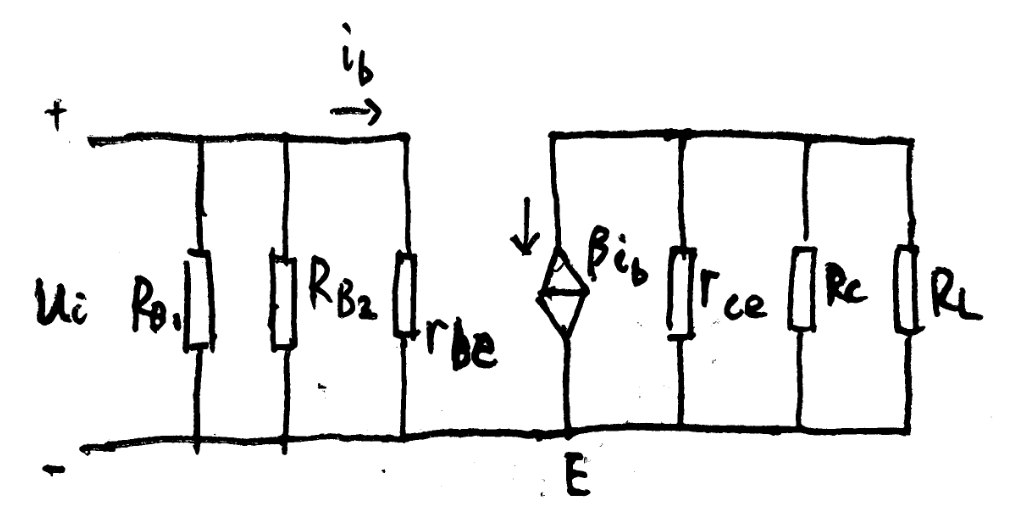 i_b
+
u_i R_B1 R_B2 r_be βi_b r_ce R_C R_L
-
E